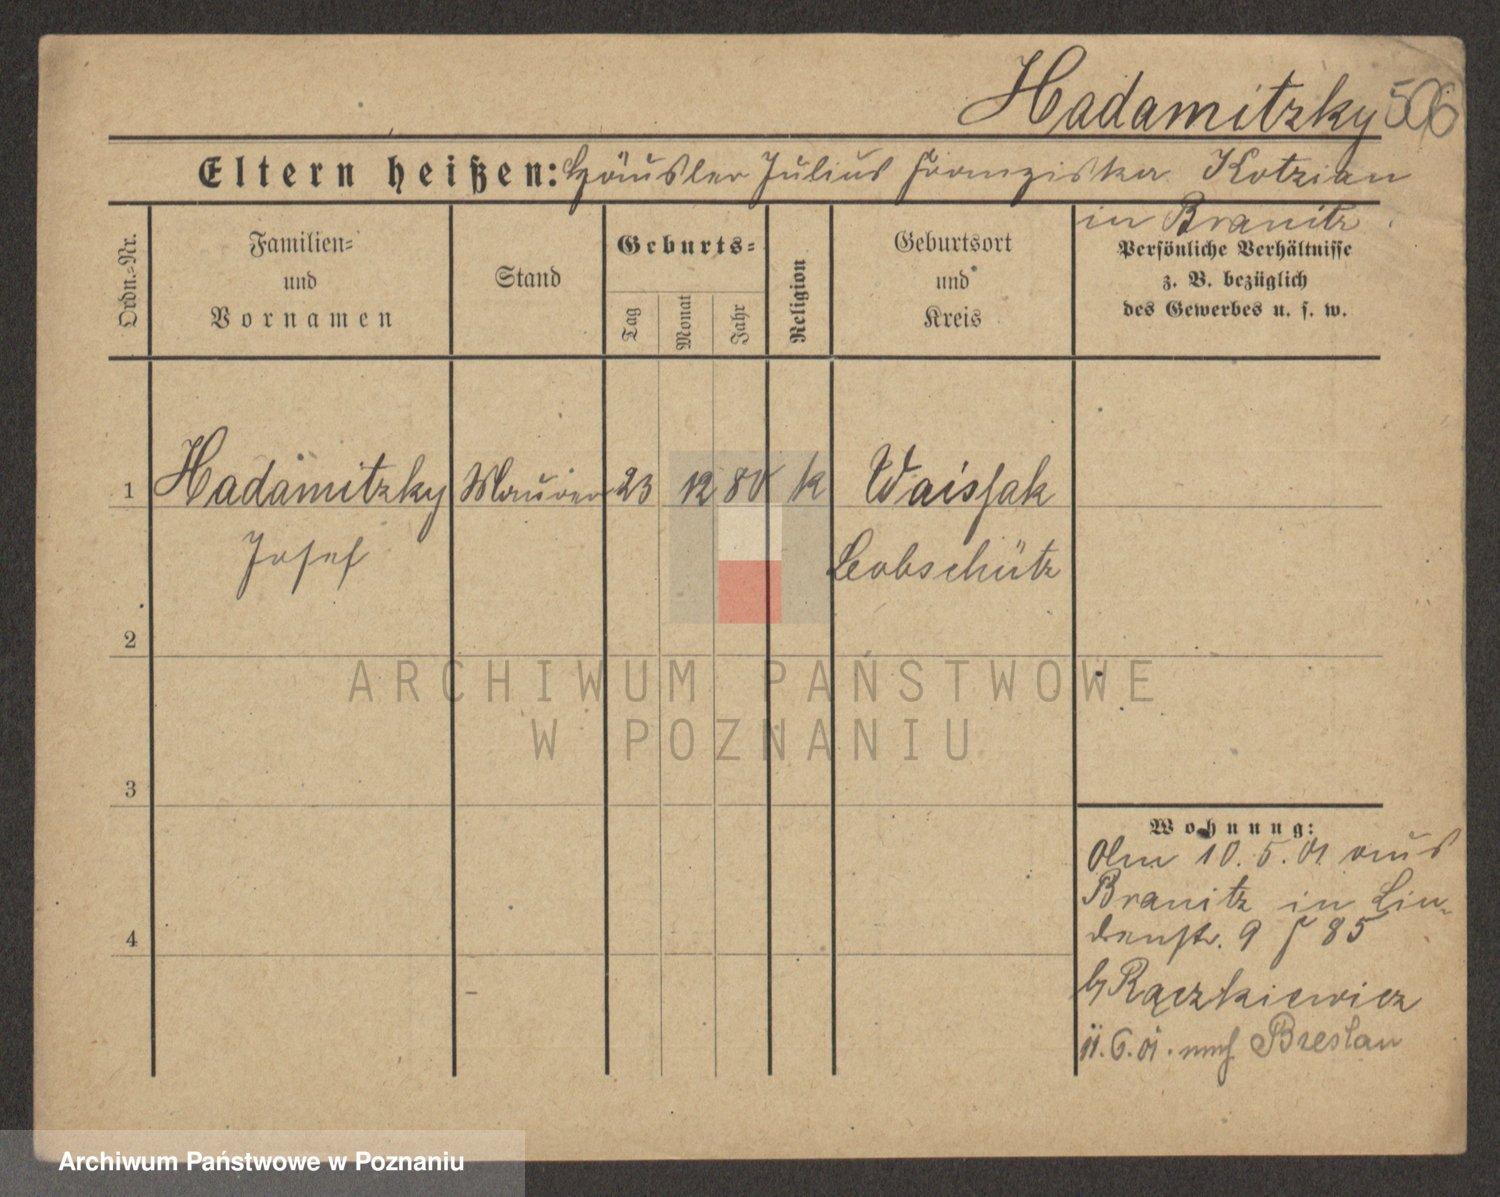 Hadamitzky 506
Eltern heißen: Häusler Julius Franziska Kotzian
in Branitz
Ordn.-Nr.
Familien-
und
Vornamen
Stand
Geburts-
Tag
Monat
Jahr
Religion
Geburtsort
und
Kreis
Persönliche Verhältnisse
z. B. bezüglich
des Gewerbes u. s. w.
1 Hadamitzky Maurer 23 12 80 k Waissak
Josef Leobschütz
2
ARCHIWUM PAŃSTWOWE
W POZNANIU
3
Wohnung:
Am 10.5.01 aus
Branitz in Lin-
denstr. 9 S 85
4
b/ Rączkiewicz
11.6.01. nach Breslau
Archiwum Państwowe w Poznaniu